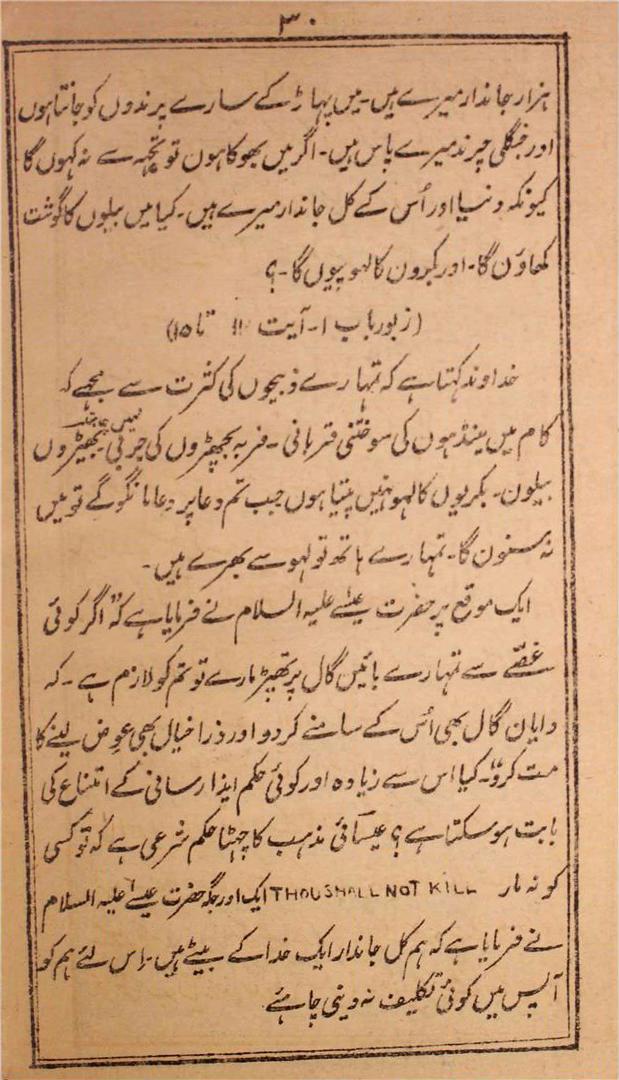 ۳۰
ہزار جاندار میرے ہیں۔ میں پہاڑ کے سارے پرندوں کو جانتا ہوں
اور جنگلی چرند میرے پاس ہیں۔ اگر میں بھوکا ہون تو تجہہ سے نہ کہوں گا
کیونکہ دنیا اور اُس کے کل جاندار میرے ہیں۔ کیا میں بیلوں کا گوشت
کھاؤن گا۔ اور بکرون کا لہو پیوں گا۔ ؟
(زبور باب ۱۔ آیت ۱۱ تا ۱۵)
خداوند کہتا ہے کہ تمہارے ذبیحوں کی کثرت سے مجہے کہ
کام میں مینڈہون کی سوختنی قربانی۔ فربہ بچھڑوں کی چربی نہیں چاہتا۔ بھیڑوں
بیلون۔ بکریوں کا لہو نہیں پیتا ہوں جب تم دعا پر دعا مانگو گے تو میں
نہ سنون گا۔ تمہارے ہاتھ تو لہو سے بھرے ہیں۔
ایک موقع پر حضرت عیسٰے علیہ السلام نے فرمایا ہے کہ "اگر کوئی
غصّے سے تمہارے بائیں گال پر تھپڑ مارے تو تم کو لازم ہے۔ کہ
دایان گال بھی اُس کے سامنے کردو اور ذرا خیال بھی عوض لینے کا
مت کرو"۔ کیا اس سے زیادہ اور کوئی حکم ایذا رسانی کے امتناع کی
بابت ہوسکتا ہے؟ عیسائی مذہب کا چہٹا حکم شرعی ہے کہ تو کسی
کو نہ مار THOU SHALL NOT KILL ایک اور جگہ حضرت عیسٰے علیہ السلام
نے فرمایا ہے کہ ہم کل جاندار ایک خدا کے بیٹے ہیں۔ اِس لئے ہم کو
آپس میں کوئی تکلیف نہ دینی چاہئے